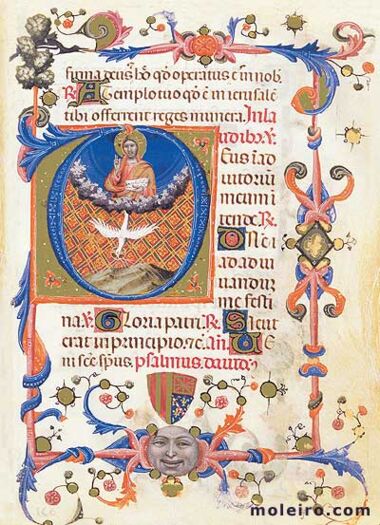 firma deus hoc qđ operatus es in nob
R A templo tuo qđ ē in ierusalē
tibi offerent reges munera. In la
udibꝫ. v.
Deus in ad
iutorium
meum in
tende R.
Domine
ad ad iu
uandum
me festi
na. v. Gloria patri R. Sicut
erat in principio. ⁊c̄. añ. Ve
ni sc̄e sp̄us. psalmus dauid
moleiro.com